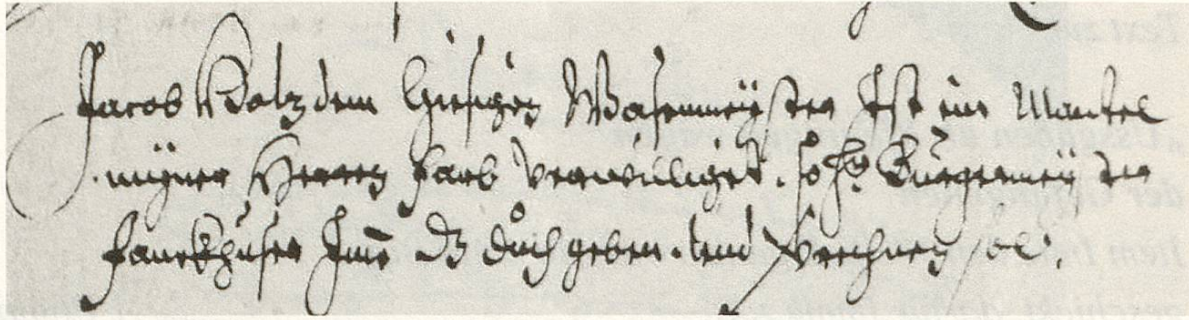 Jacob Kolz dem hiesigen Wasenmeÿster Ist ein Mantel
mÿner Herren farb verwilliget. so hr Burgermeÿster
fanckhuser Ime dz duch geben. und verrechnen sol.